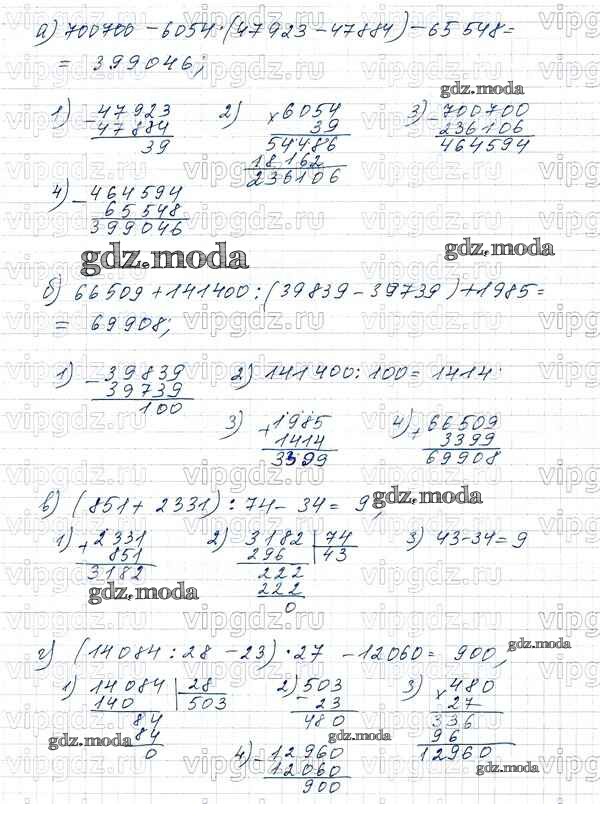 а) 700700 - 6054·(47923 - 47884) - 65548 =
= 399046;
gdz.moda
1) - 47923
47884
39
2) × 6054
39
54486
18162
236106
3) - 700700
236106
464594
4) - 464594
65548
399046
gdz.moda
gdz.moda
б) 66509 + 141400 : (39839 - 39739) + 1985 =
= 69908;
1) - 39839
39739
100
2) 141400 : 100 = 1414
3) + 1985
1414
3399
4) + 66509
3399
69908
в) (851 + 2331) : 74 - 34 = 9;
gdz.moda
1) + 2331
851
3182
2) 3182 | 74
296 | 43
222
222
0
3) 43 - 34 = 9
gdz.moda
г) (14084 : 28 - 23) · 27 - 12060 = 900,
gdz.moda
1) 14084 | 28
140 | 503
84
84
0
2) 503
- 23
480
3) × 480
27
336
96
12960
gdz.moda
gdz.moda
4) - 12960
12060
900
gdz.moda
vipgdz.ru